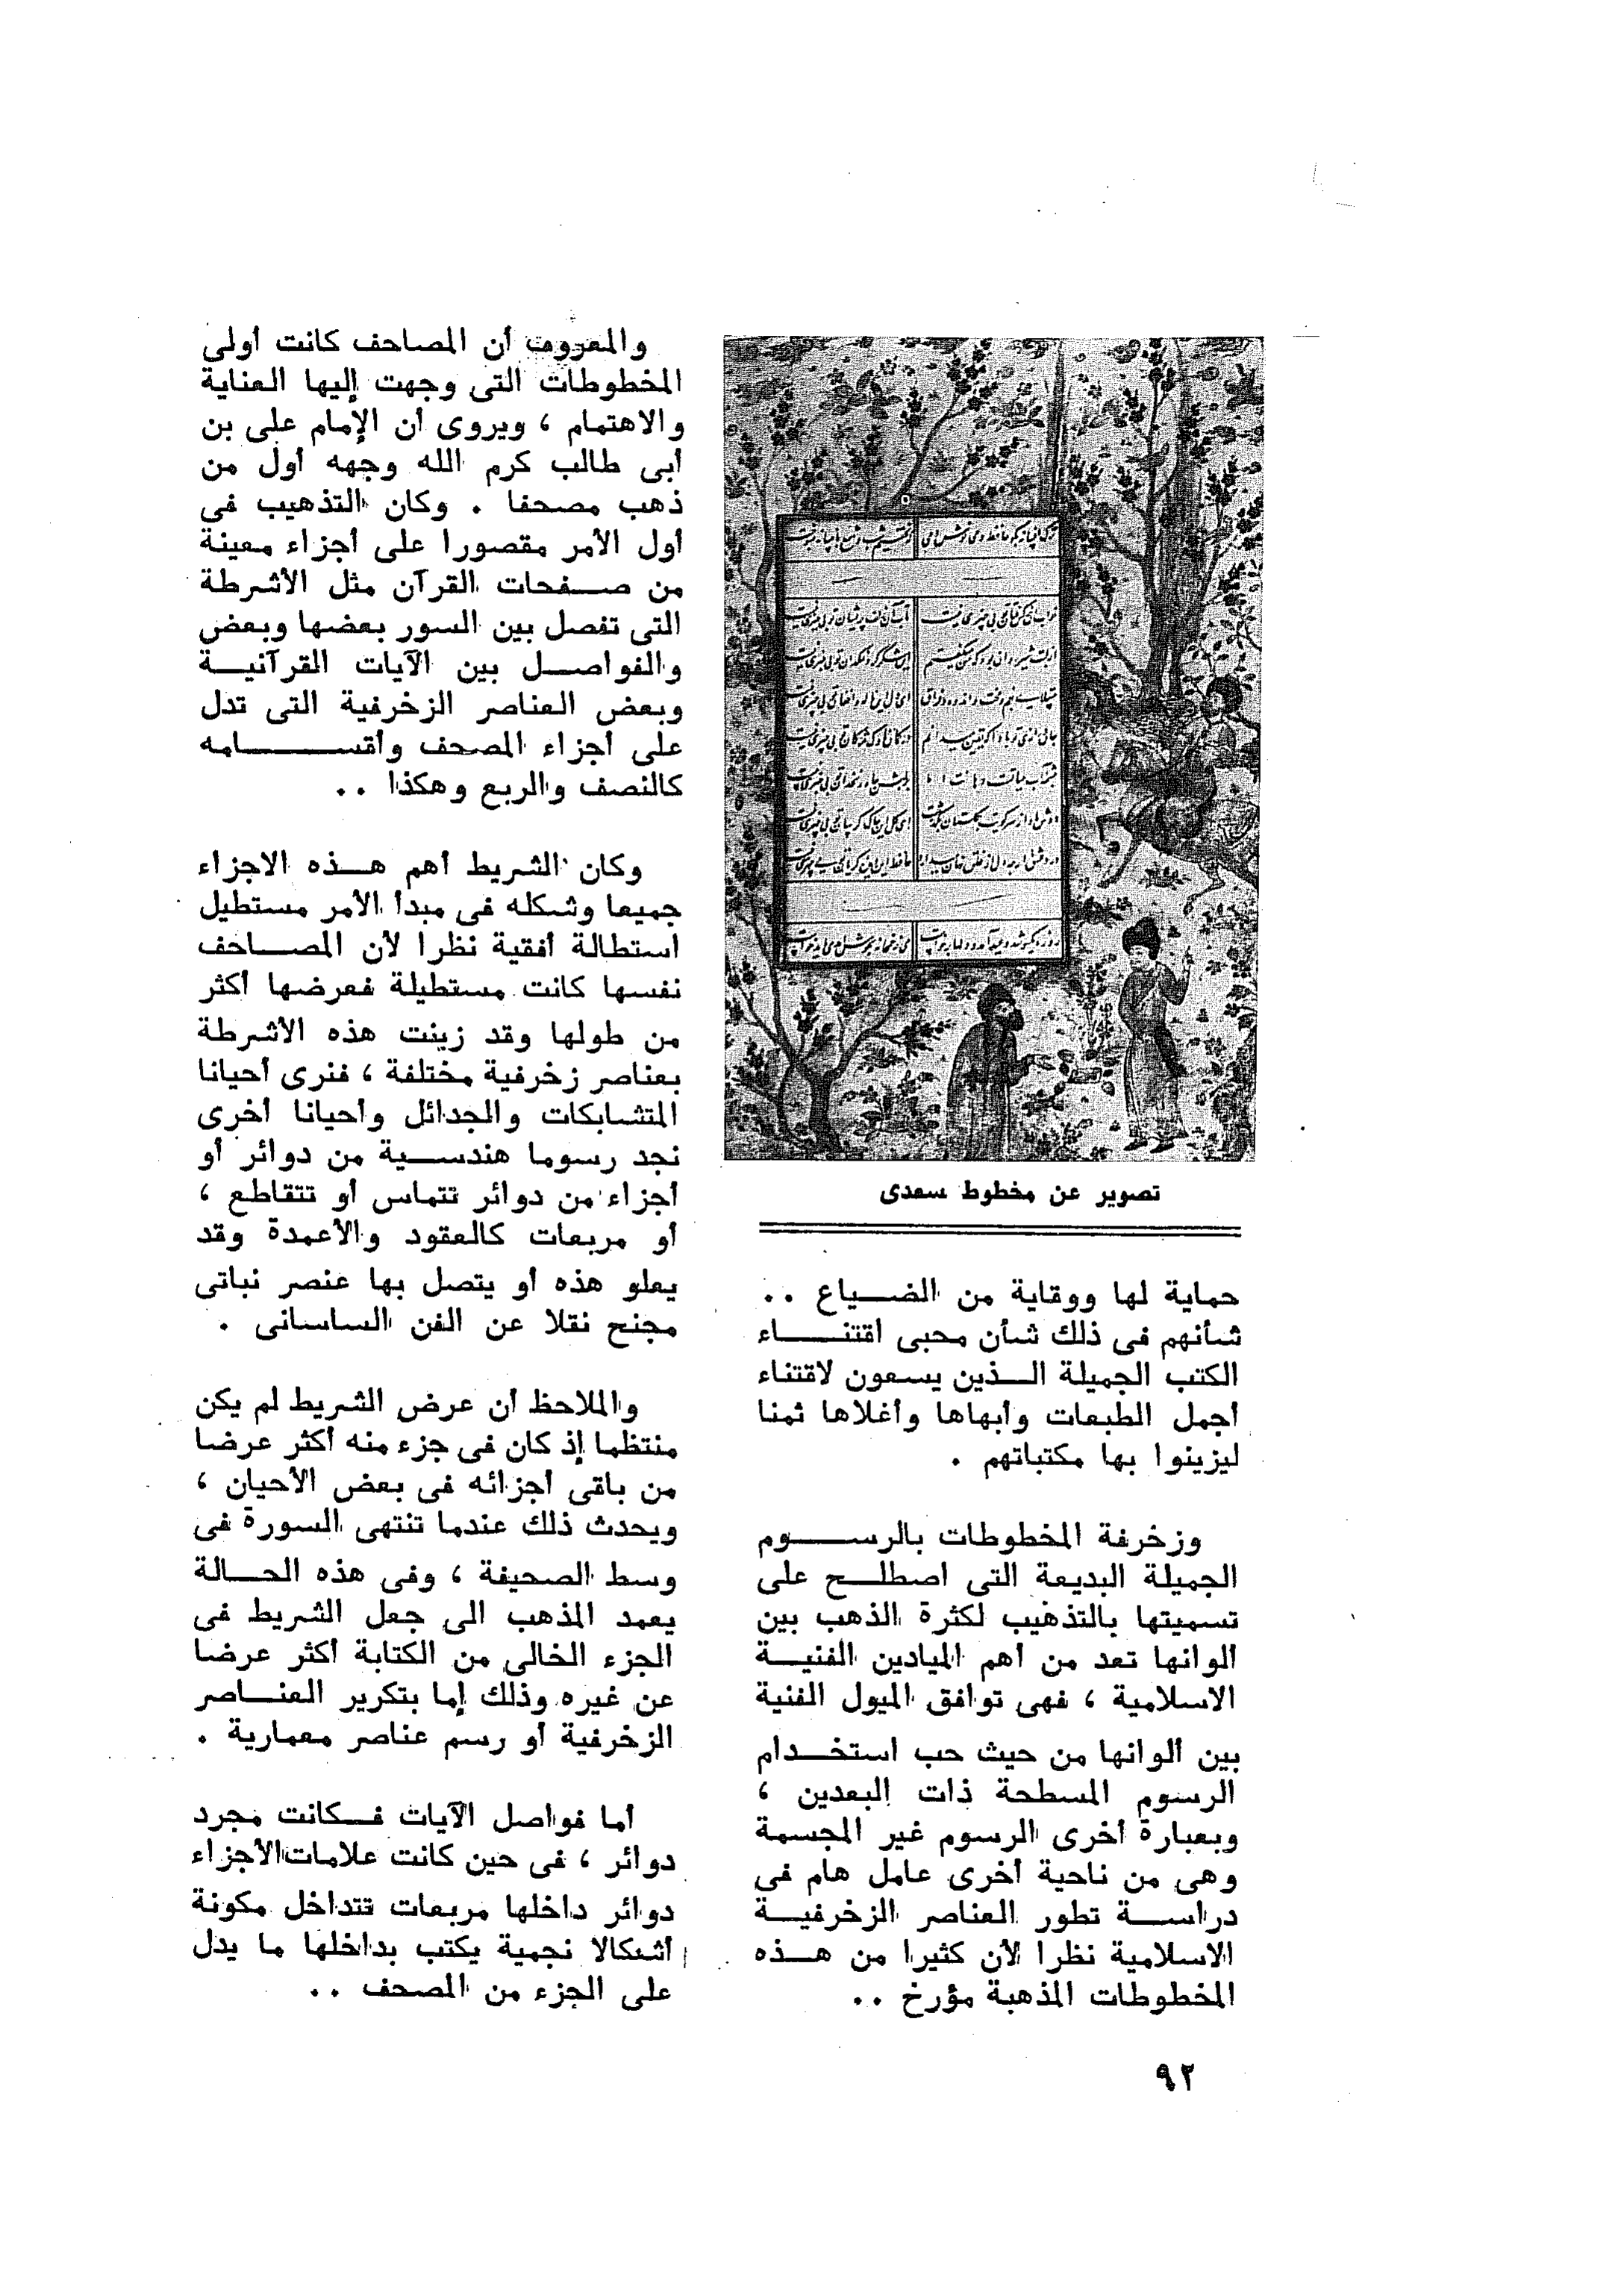 تصوير عن مخطوط سعدى
حماية لها ووقاية من الضياع ..
شأنهم فى ذلك شأن محبى اقتناء
الكتب الجميلة الذين يسعون لاقتناء
أجمل الطبعات وأبهاها وأغلاها ثمنا
ليزينوا بها مكتباتهم .
وزخرفة المخطوطات بالرسوم
الجميلة البديعة التى اصطلح على
تسميتها بالتذهيب لكثرة الذهب بين
ألوانها تعد من أهم الميادين الفنية
الاسلامية ، فهى توافق الميول الفنية
بين ألوانها من حيث حب استخدام
الرسوم المسطحة ذات البعدين ،
وبعبارة أخرى الرسوم غير المجسمة
وهى من ناحية أخرى عامل هام فى
دراسة تطور العناصر الزخرفية
الاسلامية نظرا لأن كثيرا من هذه
المخطوطات المذهبة مؤرخ ..
والمعروف أن المصاحف كانت أولى
المخطوطات التى وجهت إليها العناية
والاهتمام ، ويروى أن الإمام على بن
أبى طالب كرم الله وجهه أول من
ذهب مصحفا . وكان التذهيب فى
أول الأمر مقصورا على أجزاء معينة
من صفحات القرآن مثل الأشرطة
التى تفصل بين السور بعضها وبعض
والفواصل بين الآيات القرآنية
وبعض العناصر الزخرفية التى تدل
على أجزاء المصحف وأقسامه
كالنصف والربع وهكذا ..
وكان الشريط أهم هذه الاجزاء
جميعا وشكله فى مبدأ الأمر مستطيل
استطالة أفقية نظرا لأن المصاحف
نفسها كانت مستطيلة فعرضها أكثر
من طولها وقد زينت هذه الأشرطة
بعناصر زخرفية مختلفة ، فنرى أحيانا
المتشابكات والجدائل وأحيانا أخرى
نجد رسوما هندسية من دوائر أو
أجزاء من دوائر تتماس أو تتقاطع ،
أو مربعات كالعقود والأعمدة وقد
يعلو هذه أو يتصل بها عنصر نباتى
مجنح نقلا عن الفن الساسانى .
والملاحظ أن عرض الشريط لم يكن
منتظما إذ كان فى جزء منه أكثر عرضا
من باقى أجزائه فى بعض الأحيان ،
ويحدث ذلك عندما تنتهى السورة فى
وسط الصحيفة ، وفى هذه الحالة
يعمد المذهب الى جعل الشريط فى
الجزء الخالى من الكتابة أكثر عرضا
عن غيره وذلك إما بتكرير العناصر
الزخرفية أو رسم عناصر معمارية .
أما فواصل الآيات فكانت مجرد
دوائر ، فى حين كانت علامات الأجزاء
دوائر داخلها مربعات تتداخل مكونة
أشكالا نجمية يكتب بداخلها ما يدل
على الجزء من المصحف ..
٩٢